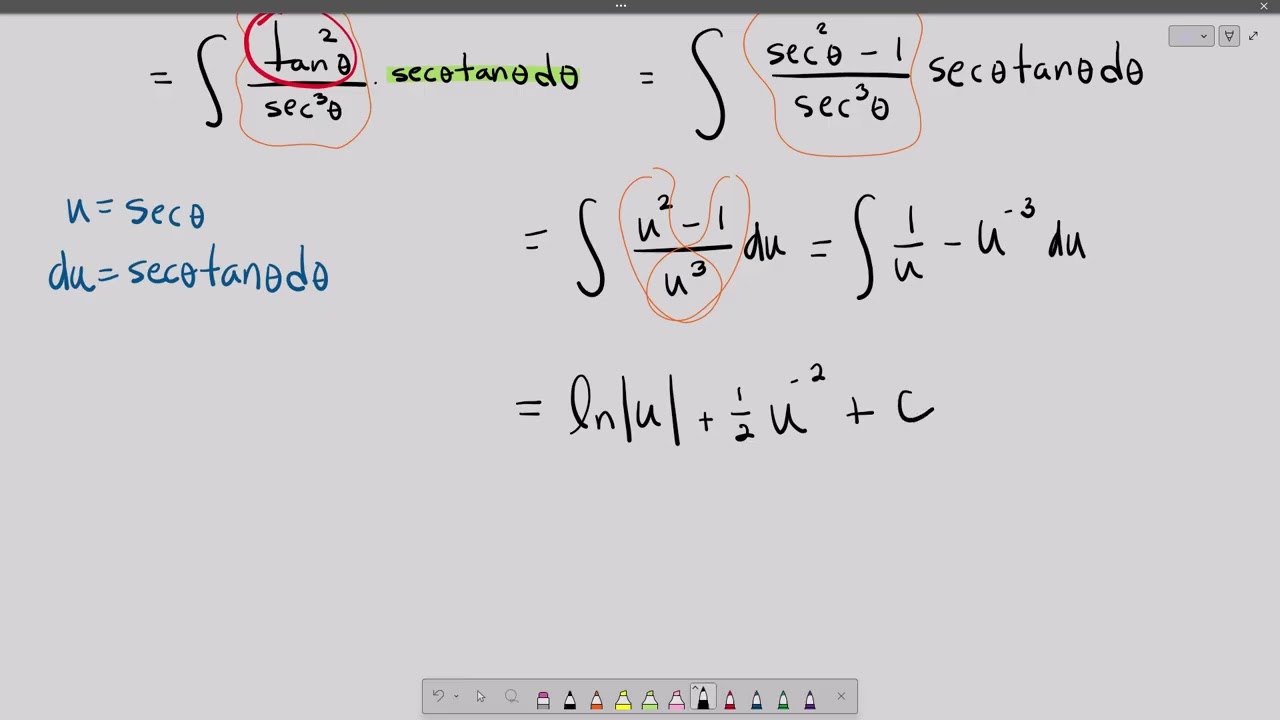 = ∫ tan²θ / sec³θ · secθtanθdθ = ∫ (sec²θ − 1) / sec³θ secθtanθdθ
u = secθ
du = secθtanθdθ
= ∫ (u² − 1) / u³ du = ∫ 1/u − u⁻³ du
= ln|u| + ½ u⁻² + C